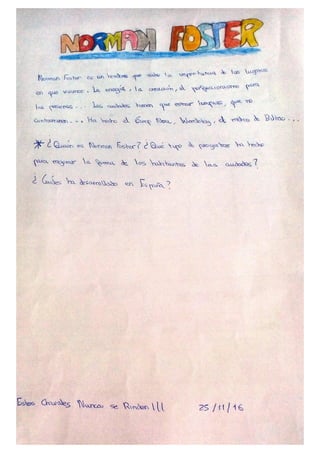 NORMAN FOSTER
Norman Foster es un hombre que sabe la importancia de los lugares
en que vivimos. La energía, la creación, el
para
las personas... Las ciudades tienen que estar limpias, que no
contaminen... Ha hecho el Camp Nou, Wembley, el metro de Bilbao...
* ¿Quién es Norman Foster? ¿Qué tipo de proyectos ha hecho
para mejorar la forma de los habitantes de las ciudades?
¿Cuáles ha desarrollado en España?
Estos Chavales Nunca se Rinden!!! 25/11/16